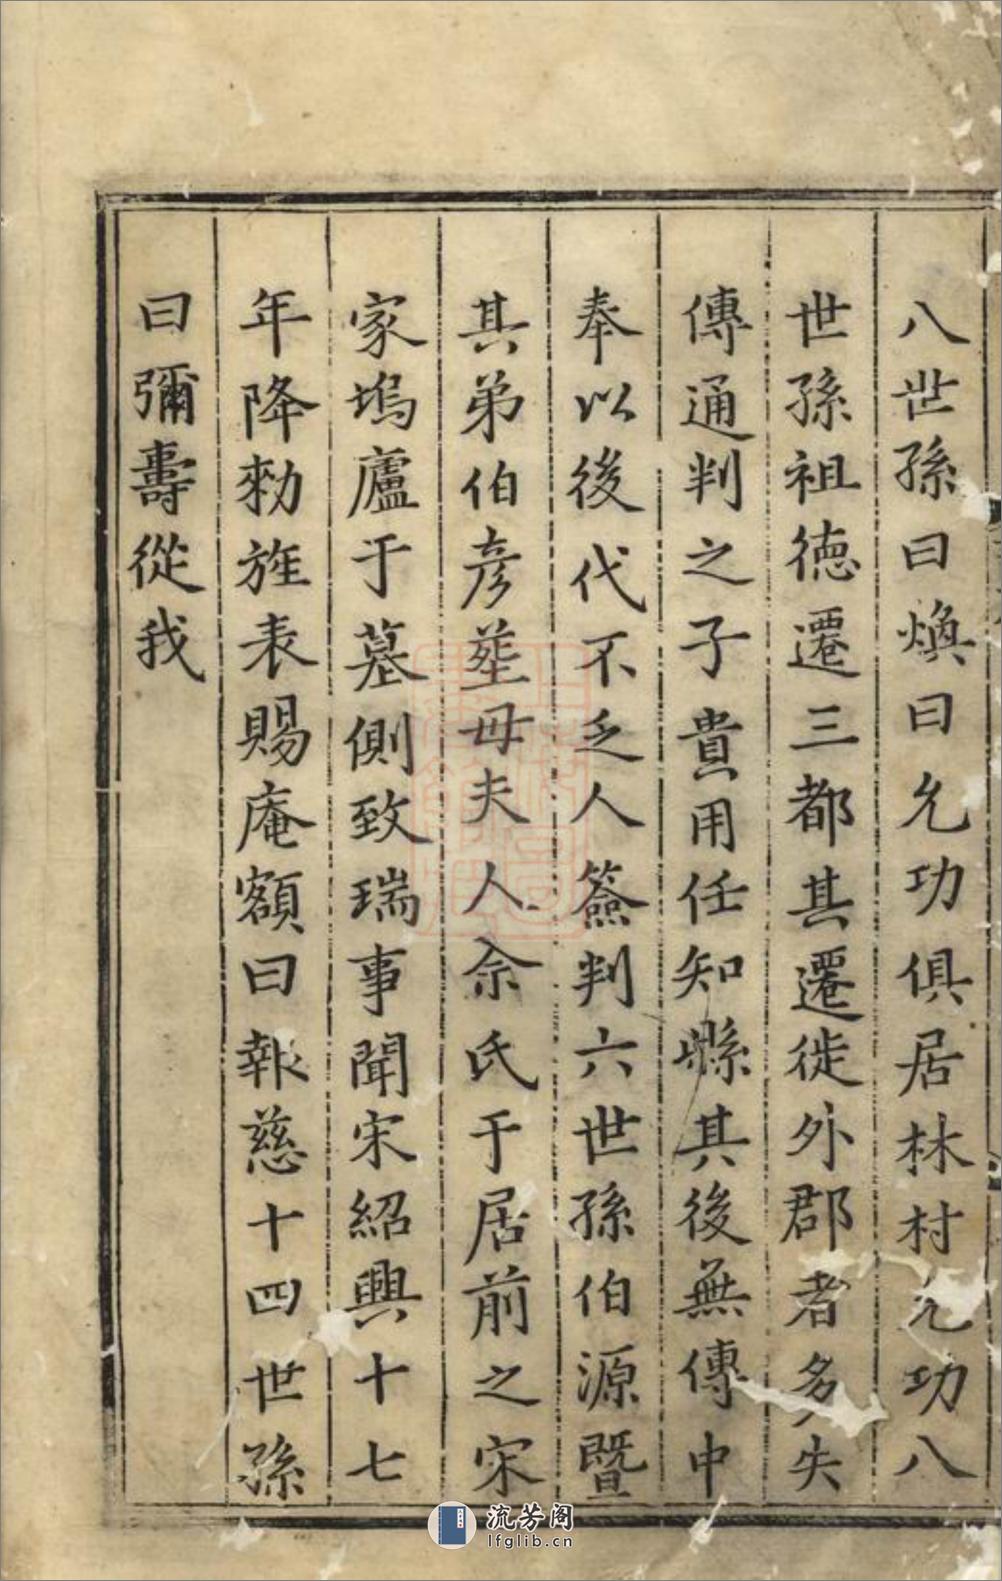 八世孫曰煥曰允功俱居林村允功八
世孫祖德遷三都其遷徙外郡者多失
傳通判之子貴用任知縣其後無傳中
奉以後代不乏人簽判六世孫伯源暨
其弟伯彥葬母夫人余氏于居前之宋
家塢廬于墓側致瑞事聞宋紹興十七
年降勑旌表賜庵額曰報慈十四世孫
曰彌壽從我
流芳阁
lfglib.cn